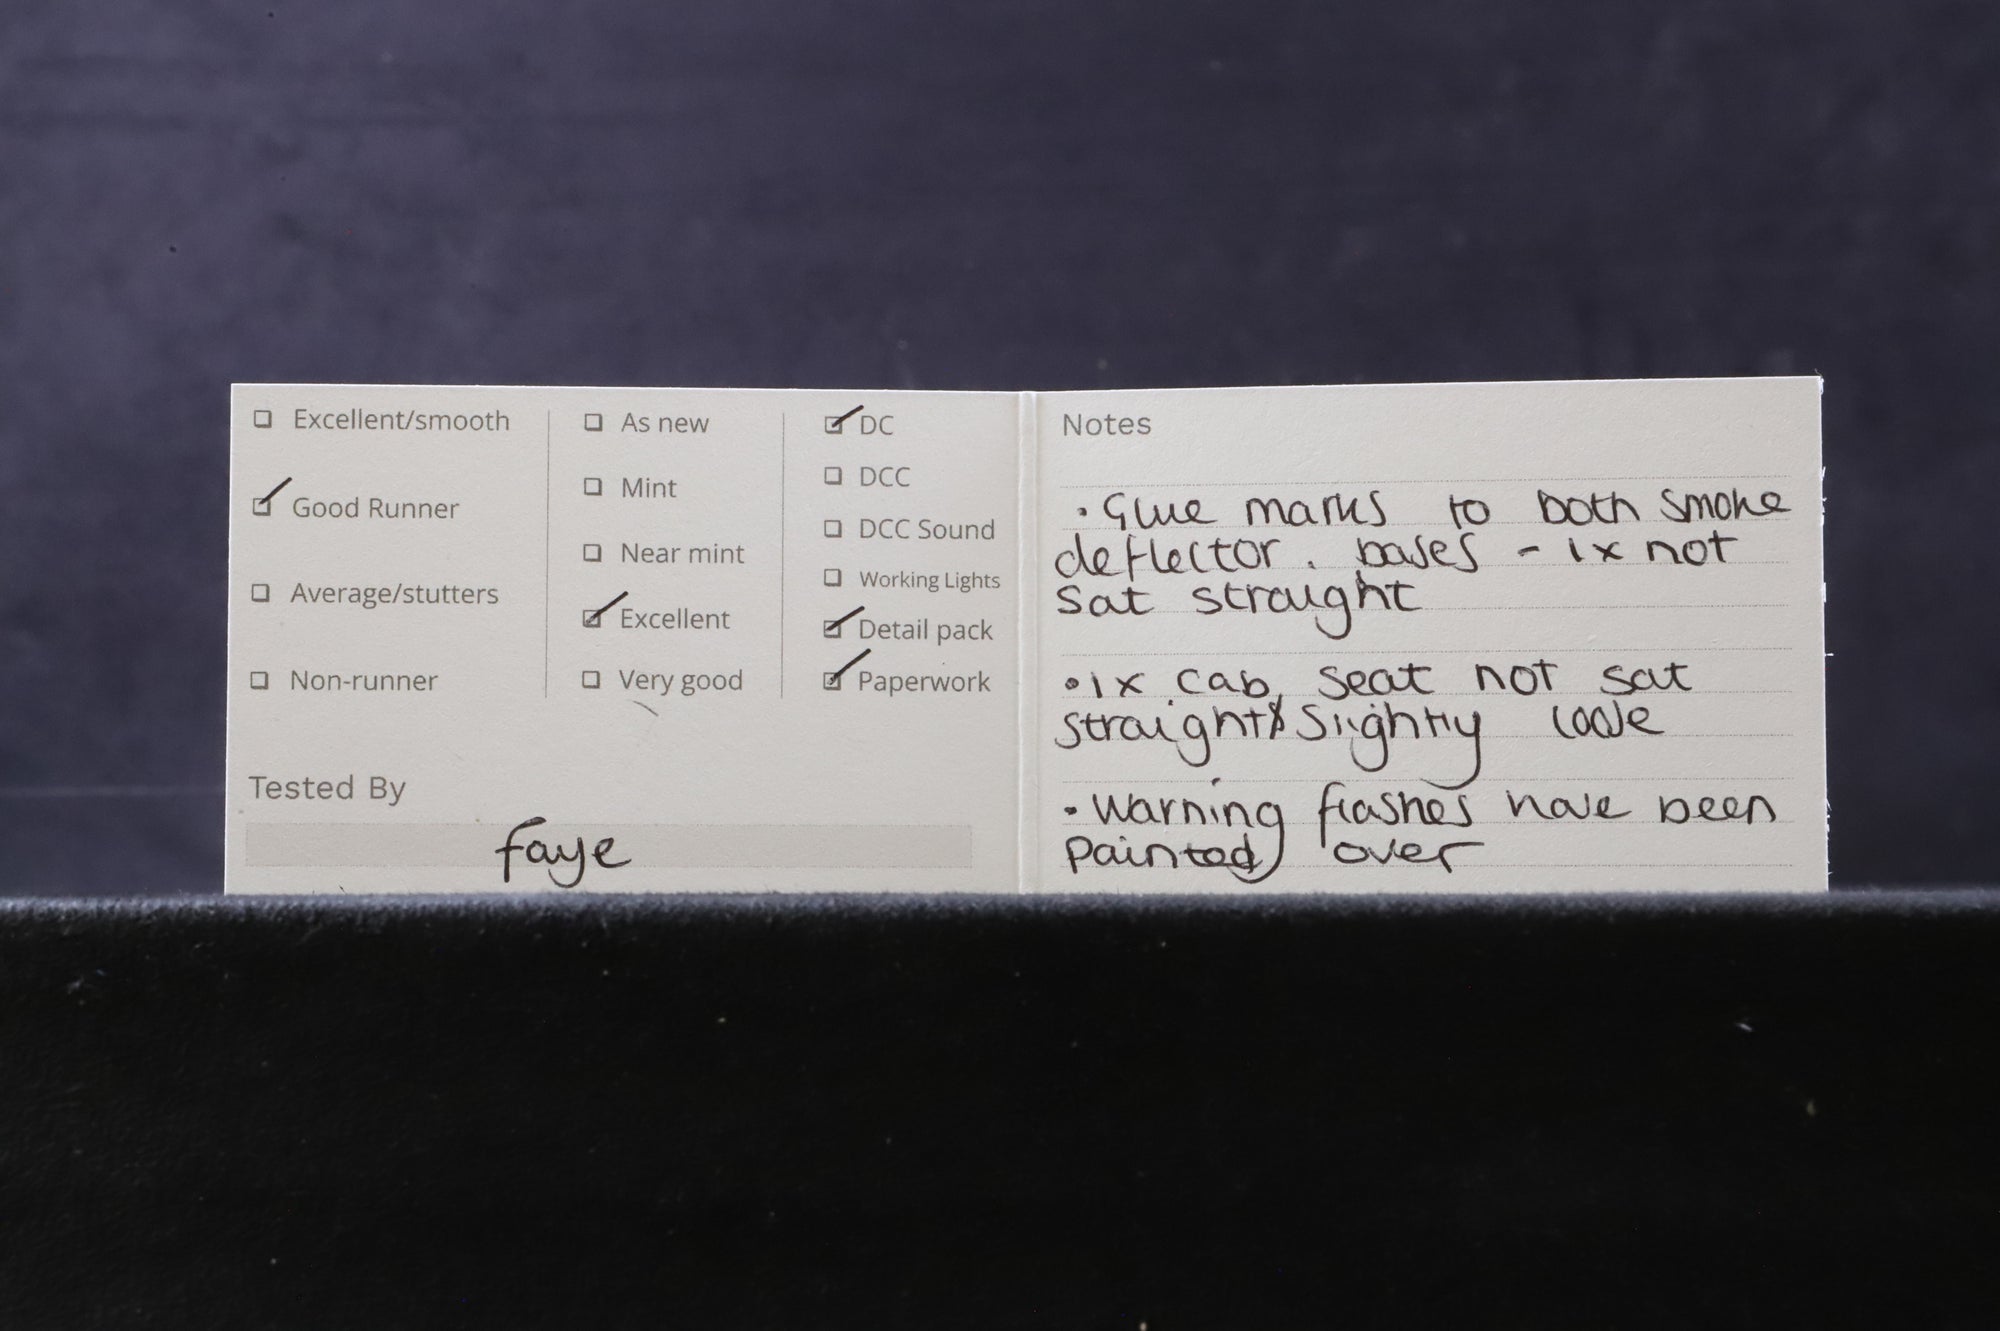 ☐ Excellent/smooth
☑ Good Runner
☐ Average/stutters
☐ Non-runner
☐ As new
☐ Mint
☐ Near mint
☑ Excellent
☐ Very good
☑ DC
☐ DCC
☐ DCC Sound
☐ Working Lights
☑ Detail pack
☑ Paperwork
Tested By
Faye
Notes
• Glue marks to both smoke
deflector. bases - 1x not
sat straight
• 1x cab seat not sat
straight & slightly loose
• Warning flashes have been
painted over